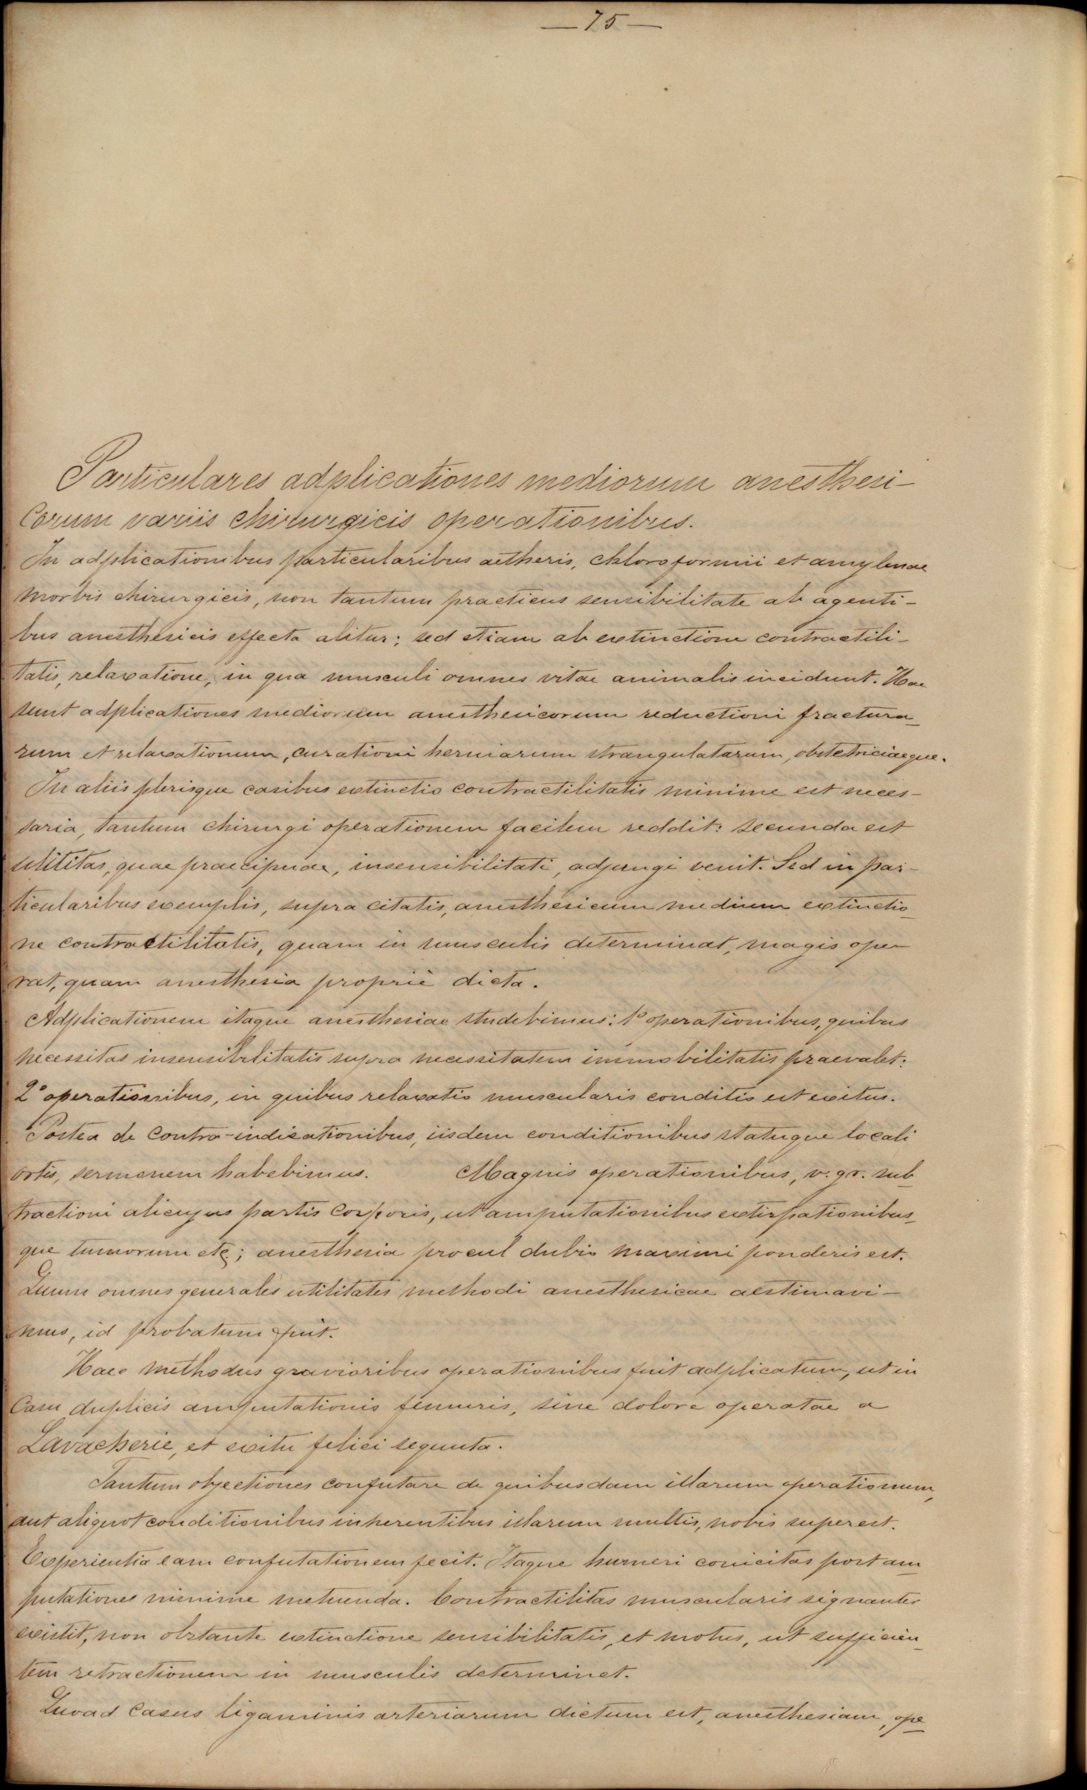 — 75 —
Particulares adplicationes mediorum anestheri-
corum variis chirurgicis operationibus.
In adplicationibus particularibus aetheris, chloroformii et amylenae
morbis chirurgicis, non tantum practicus sensibilitate ab agenti-
bus anesthericis effecta alitur; sed etiam ab extinctione contractili-
tatis, relaxatione, in qua musculi omnes vitae animalis incidunt. Hae
sunt adplicationes mediorum anesthericorum reductioni fractura-
rum et relaxationum, curationi herniarum strangulatarum, obstetriciaeque.
In aliis plerisque casibus extinctio contractilitatis minime est neces-
saria, tantum chirurgi operationem facilem reddit: secunda est
utilitas, quae praecipuae, insensibilitati, adjungi venit. Sed in par-
ticularibus exemplis, supra citatis, anesthericum medium extinctio-
ne contractilitatis, quam in musculis determinat, magis ope-
rat, quam anesthesia proprié dicta.
Adplicationem itaque anesthesiae studebimus: 1º operationibus, quibus
necessitas insensibilitatis supra necessitatem immobilitatis praevalet:
2º operationibus, in quibus relaxatio muscularis conditio est exitus.
Postea de contra-indicationibus, iisdem conditionibus statuque locali
ortis, sermonem habebimus. Magnis operationibus, v. gr. sub-
tractioni alicujus partis corporis, ut amputationibus extirpationibus-
que tumorum etc; anesthesia procul dubio maximi ponderis est.
Quum omnes generales utilitates methodi anesthericae aestimavi-
mus, id probatum fuit.
Haec methodus gravioribus operationibus fuit adplicatum, ut in
casu duplicis amputationis femuris, sine dolore operatae a
Lavacherie, et exitu felici sequuta.
Tantum objectiones confutare de quibusdam illarum operationum,
aut aliquot conditionibus inherentibus illarum multis, nobis superest.
Experientia eam confutationem fecit. Itaque humeri conicitas post am-
putationes minime metuenda. Contractilitas muscularis signanter
existit, non obstante extinctione sensibilitatis, et motus, ut sufficien-
tem retractionem in musculis determinet.
Quoad casus ligaminis arteriarum dictum est, anesthesiam, ope-